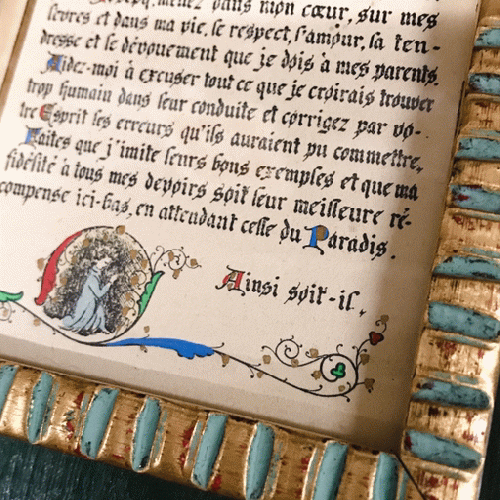 mettez dans mon cœur, sur mes
lèvres et dans ma vie, le respect, l'amour, la ten-
dresse et le dévouement que je dois à mes parents.
Aidez-moi à excuser tout ce que je croirais trouver
trop humain dans leur conduite et corrigez par vo-
tre Esprit les erreurs qu'ils auraient pu commettre,
Faites que j'imite leurs bons exemples et que ma
fidélité à tous mes devoirs soit leur meilleure ré-
compense ici-bas, en attendant celle du Paradis.
Ainsi soit-il,